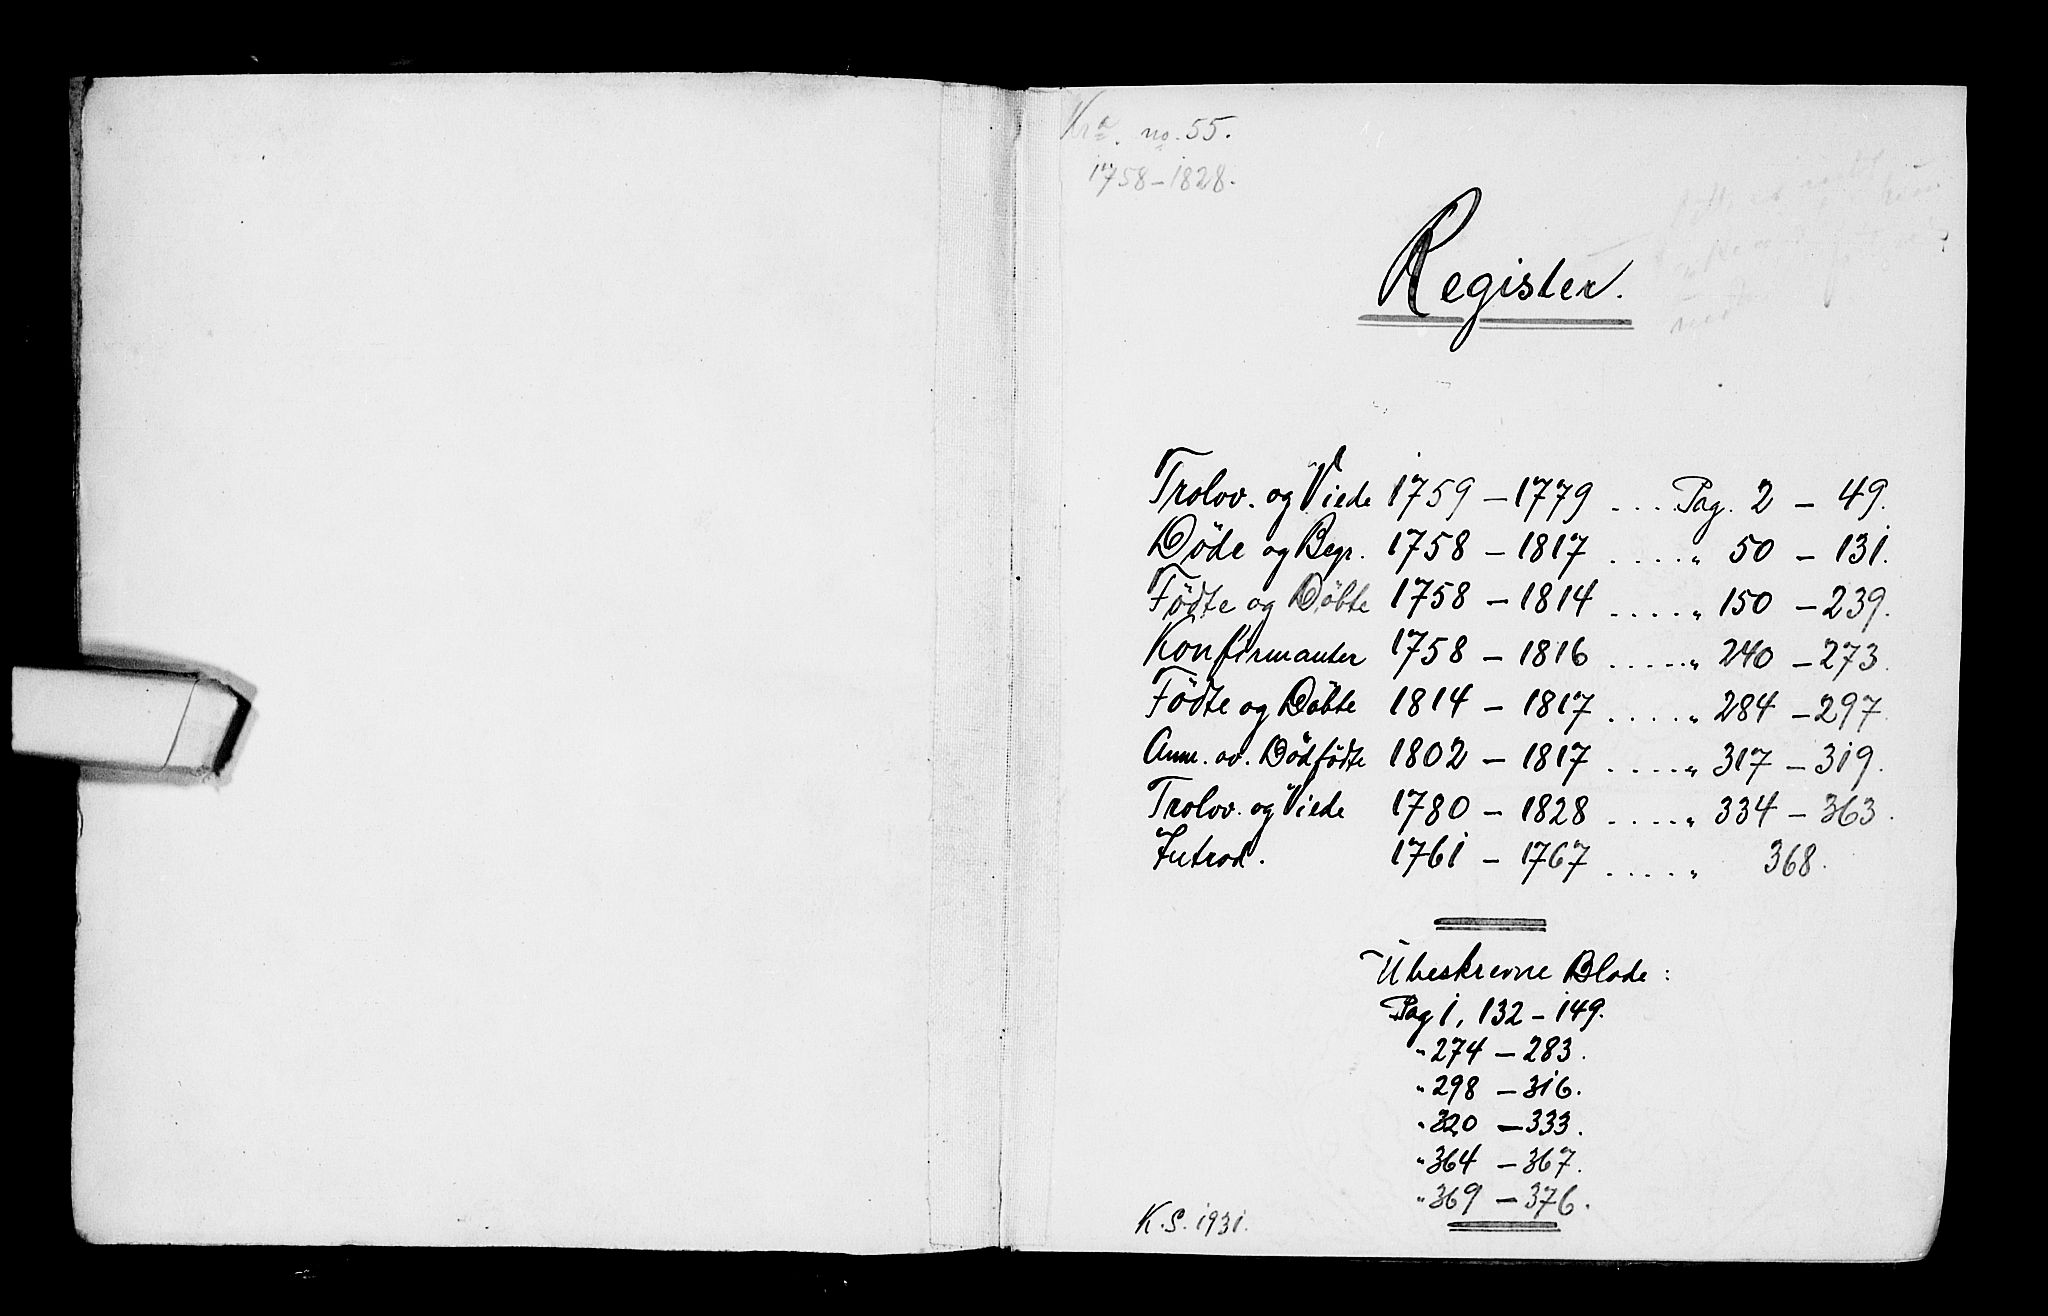 Kra. no. 55.
1758-1828.
Register.
Trolov. og Viede 1759 - 1779 .... Pag. 2 - 49.
Døde og Begr. 1758 - 1817 ..... " 50 - 131.
Födte og Döbte 1758 - 1814 ..... " 150 - 239.
Konfirmanter 1758 - 1816 ..... " 240 - 273.
Födte og Döbte 1814 - 1817 ..... " 284 - 297
Anm. av. Dödfödte 1802 - 1817 ..... " 317 - 319.
Trolov. og Viede 1780 - 1828 ..... " 334 - 363.
Introd. 1761 - 1767 ..... " 368.
Ubeskrevne Blade:
Pag 1, 132 - 149.
" 274 - 283.
" 298 - 316.
" 320 - 333.
" 364 - 367.
" 369 - 376.
K.S. 1931.